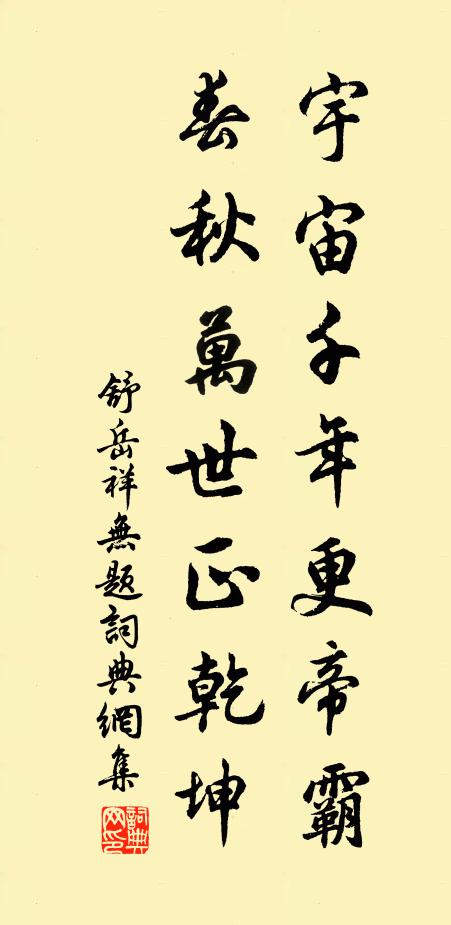 宇宙千年更帝霸
春秋萬世正乾坤
舒岳祥無題詞典網集
詞典网印